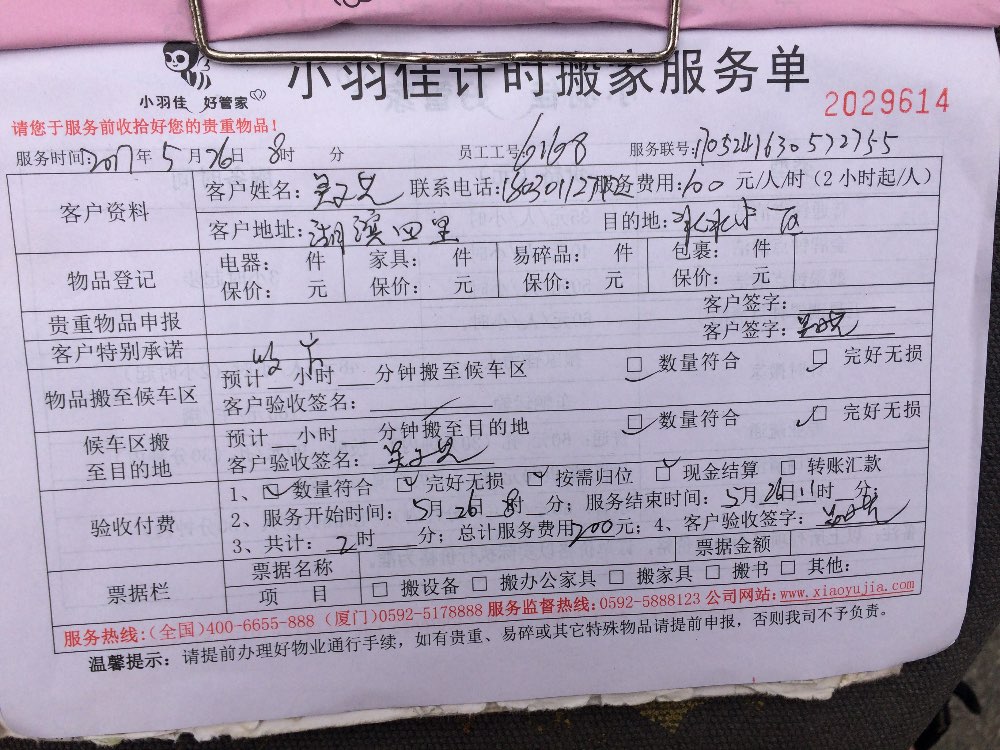 小羽佳计时搬家服务单
小羽佳 好管家
2029614
请您于服务前收拾好您的贵重物品！
服务时间：2017年5月26日8时 分 员工工号：6168 服务联号：
客户资料
客户姓名： 联系电话： 服务费用：100元/人/时（2小时起/人）
客户地址：湖滨四里 目的地：
物品登记
电器： 件 家具： 件 易碎品： 件 包裹： 件
保价： 元 保价： 元 保价： 元 保价： 元
贵重物品申报 客户签字：
客户特别承诺 客户签字：
物品搬至候车区
预计 小时 分钟搬至候车区 数量符合 完好无损
客户验收签名：
候车区搬至目的地
预计 小时 分钟搬至目的地 数量符合 完好无损
客户验收签名：
验收付费
1、 数量符合 完好无损 按需归位 现金结算 转账汇款
2、服务开始时间：5月26日8时 分；服务结束时间：5月26日11时 分；
3、共计：2时 分；总计服务费用200元；4、客户验收签字：
票据栏
票据名称 票据金额
项 目 搬设备 搬办公家具 搬家具 搬书 其他：
服务热线:(全国)400-6655-888 (厦门)0592-5178888 服务监督热线:0592-5888123 公司网站:www.xiaoyujia.com
温馨提示：请提前办理好物业通行手续，如有贵重、易碎或其它特殊物品请提前申报，否则我司不予负责。